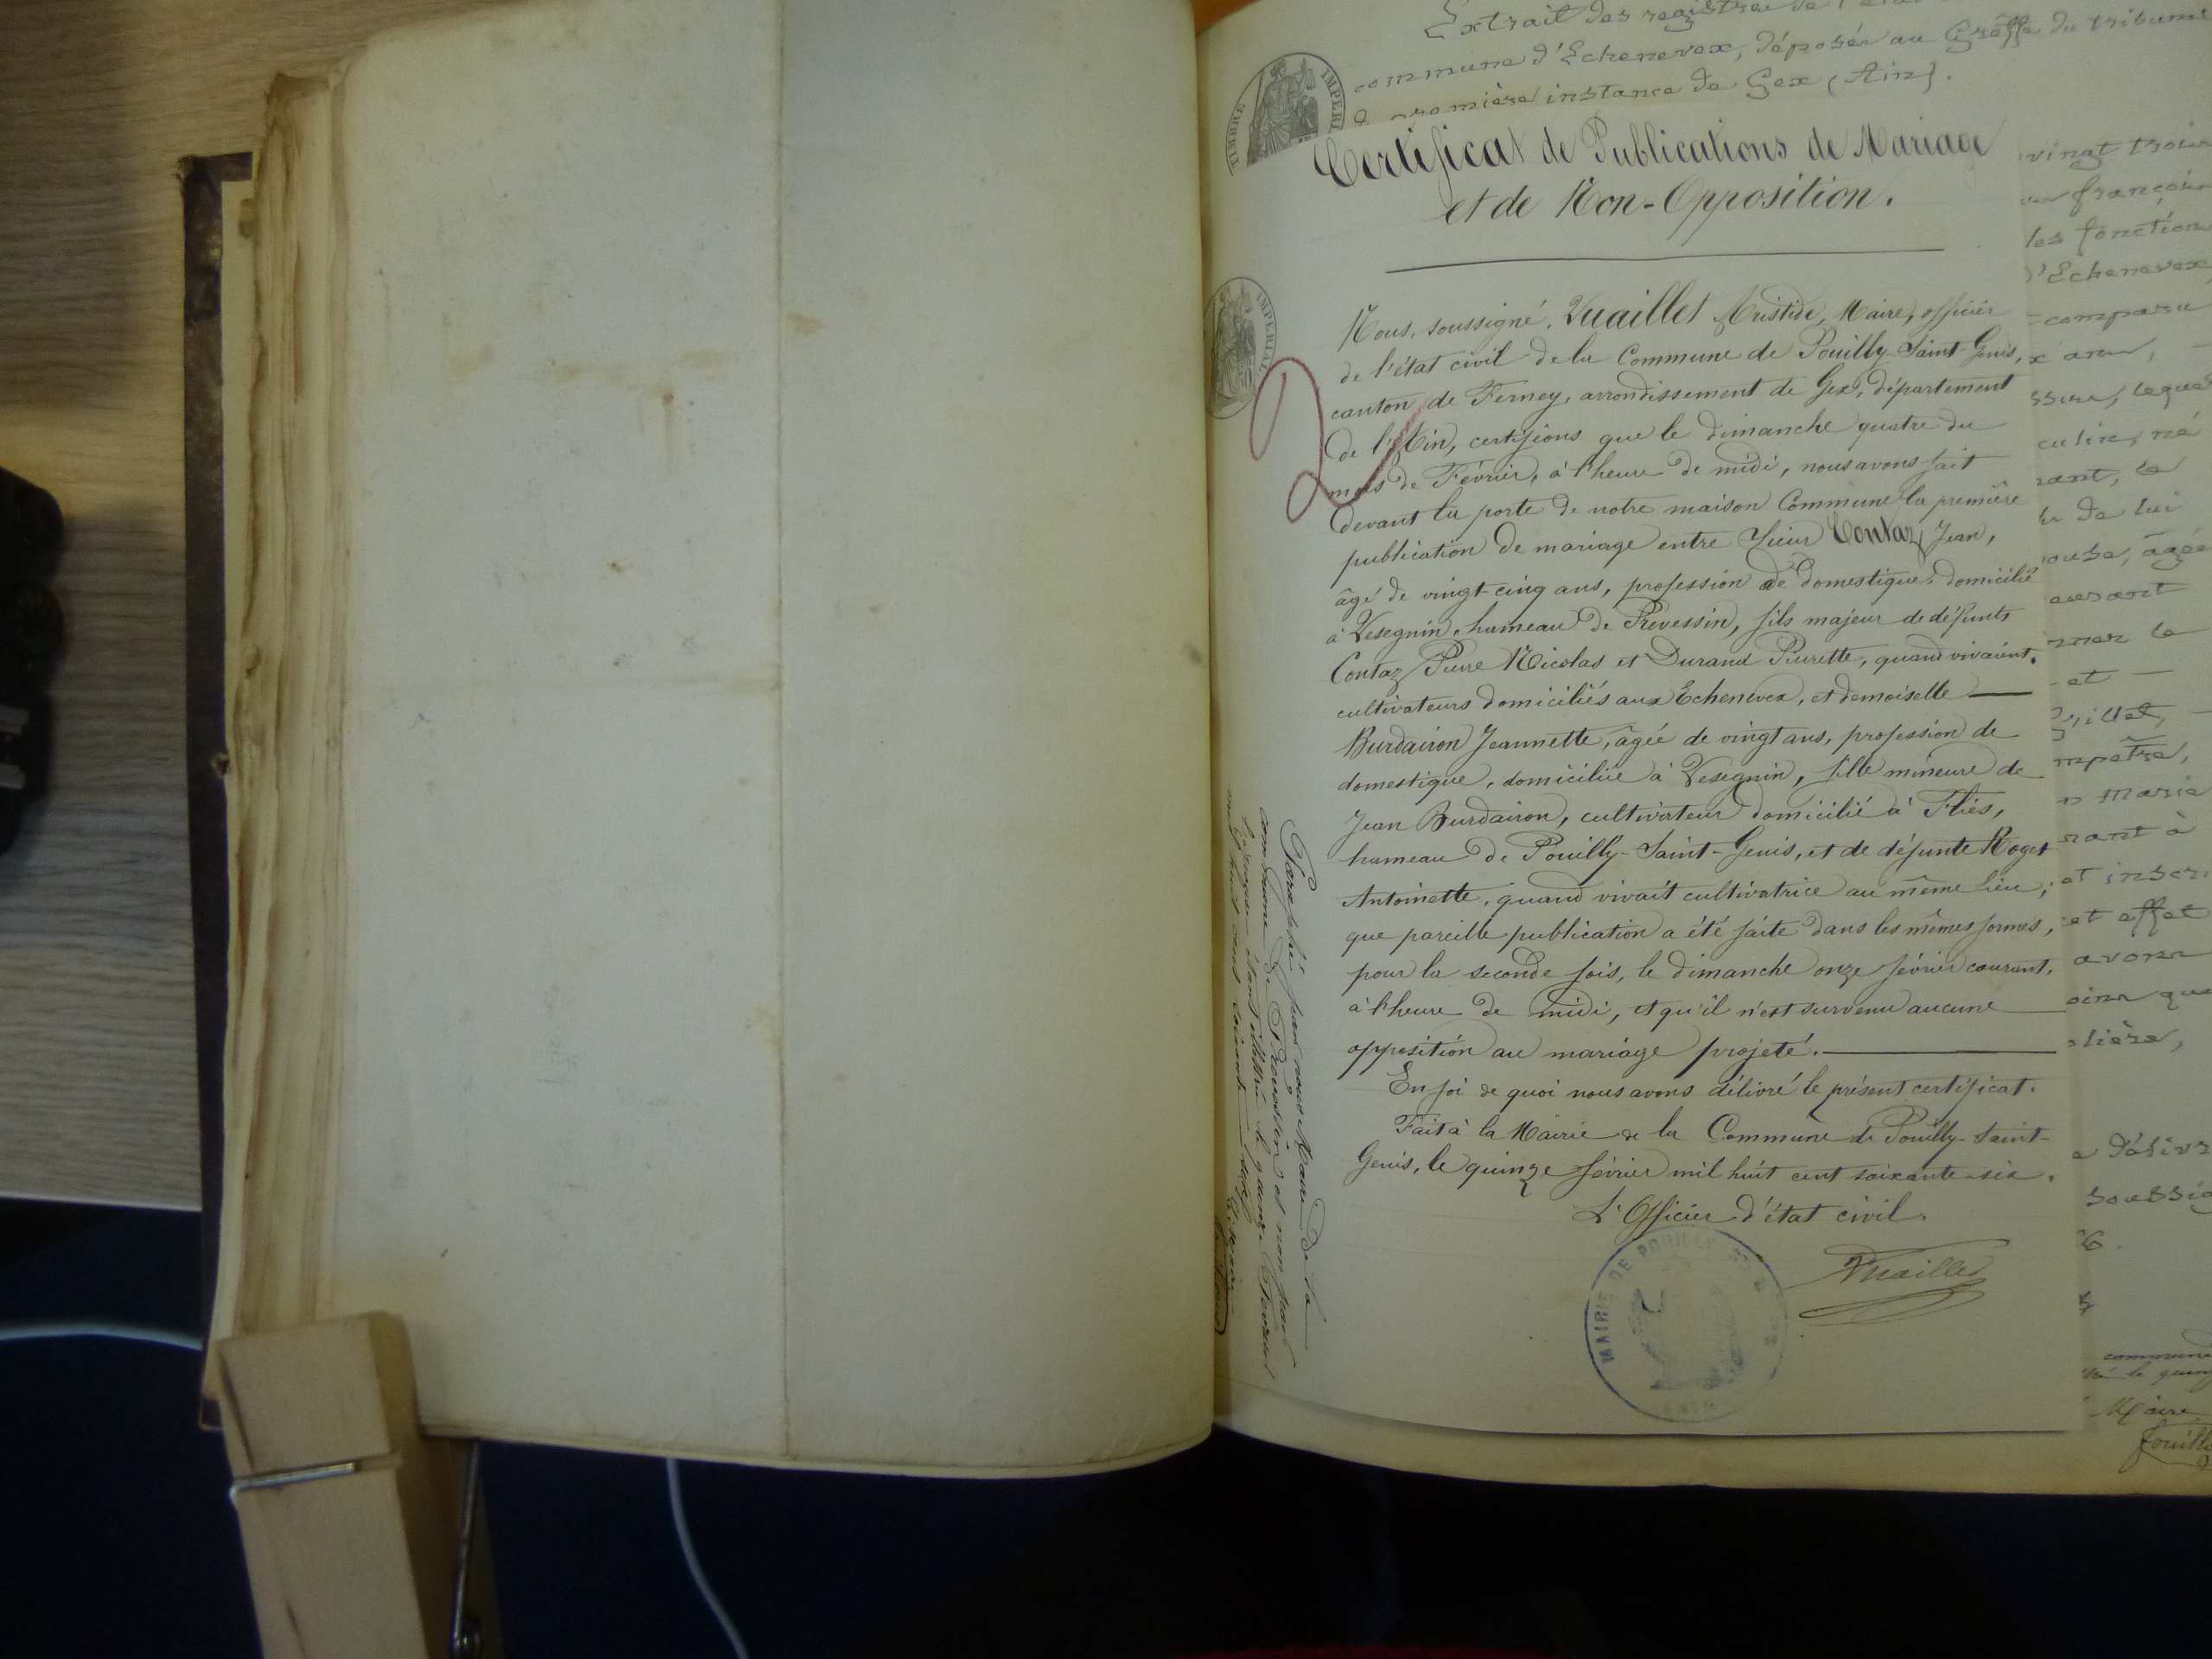 Extrait des registres de l'état
commune d'Echenevex, déposés au Greffe du tribunal
première instance de Gex (Ain).
TIMBRE IMPERIAL
Certificat de Publications de Mariage
et de Non-Opposition.
IMPERIAL
Nous, soussigné, Vuaillet Aristide, Maire, officier
de l'état civil de la Commune de Pouilly-Saint-Genis,
canton de Ferney, arrondissement de Gex, département
de l'Ain, certifions que le dimanche quatre du
mois de Février, à l'heure de midi, nous avons fait
devant la porte de notre maison Commune la première
publication de mariage entre Sieur Contaz Jean,
âgé de vingt-cinq ans, profession de domestique, domicilié
à Vesegnin, hameau de Prévessin, fils majeur de défunts
Contaz Pierre Nicolas et Durand Pierrette, quand vivaient
cultivateurs domiciliés aux Echenevex, et demoiselle
Burdairon Jeannette, âgée de vingt ans, profession de
domestique, domiciliée à Vesegnin, fille mineure de
Jean Burdairon, cultivateur domicilié à Fliés,
hameau de Pouilly-Saint-Genis, et de défunte Roget
Antoinette, quand vivait cultivatrice au même lieu;
que pareille publication a été faite dans les mêmes formes,
pour la seconde fois, le dimanche onze février courant,
à l'heure de midi, et qu'il n'est survenu aucune
opposition au mariage projeté.
En foi de quoi nous avons délivré le présent certificat.
Fait à la Mairie de la Commune de Pouilly-Saint-
Genis, le quinze février mil huit cent soixante-six.
L'Officier d'état civil.
Vuaillet
MAIRIE DE POUILLY
Paraphé par nous Maire de la
commune de Prévessin et non par
mil huit cent soixante six
vingt trois
françois
les fonction
d'Echenevex
comparu
lequel
culin, né
de lui
ouse, âgée
et
mpêtre,
Marie
nant à
et inscri
cet effet
avons
que
lière,
délivr
soussig
commune
Maire